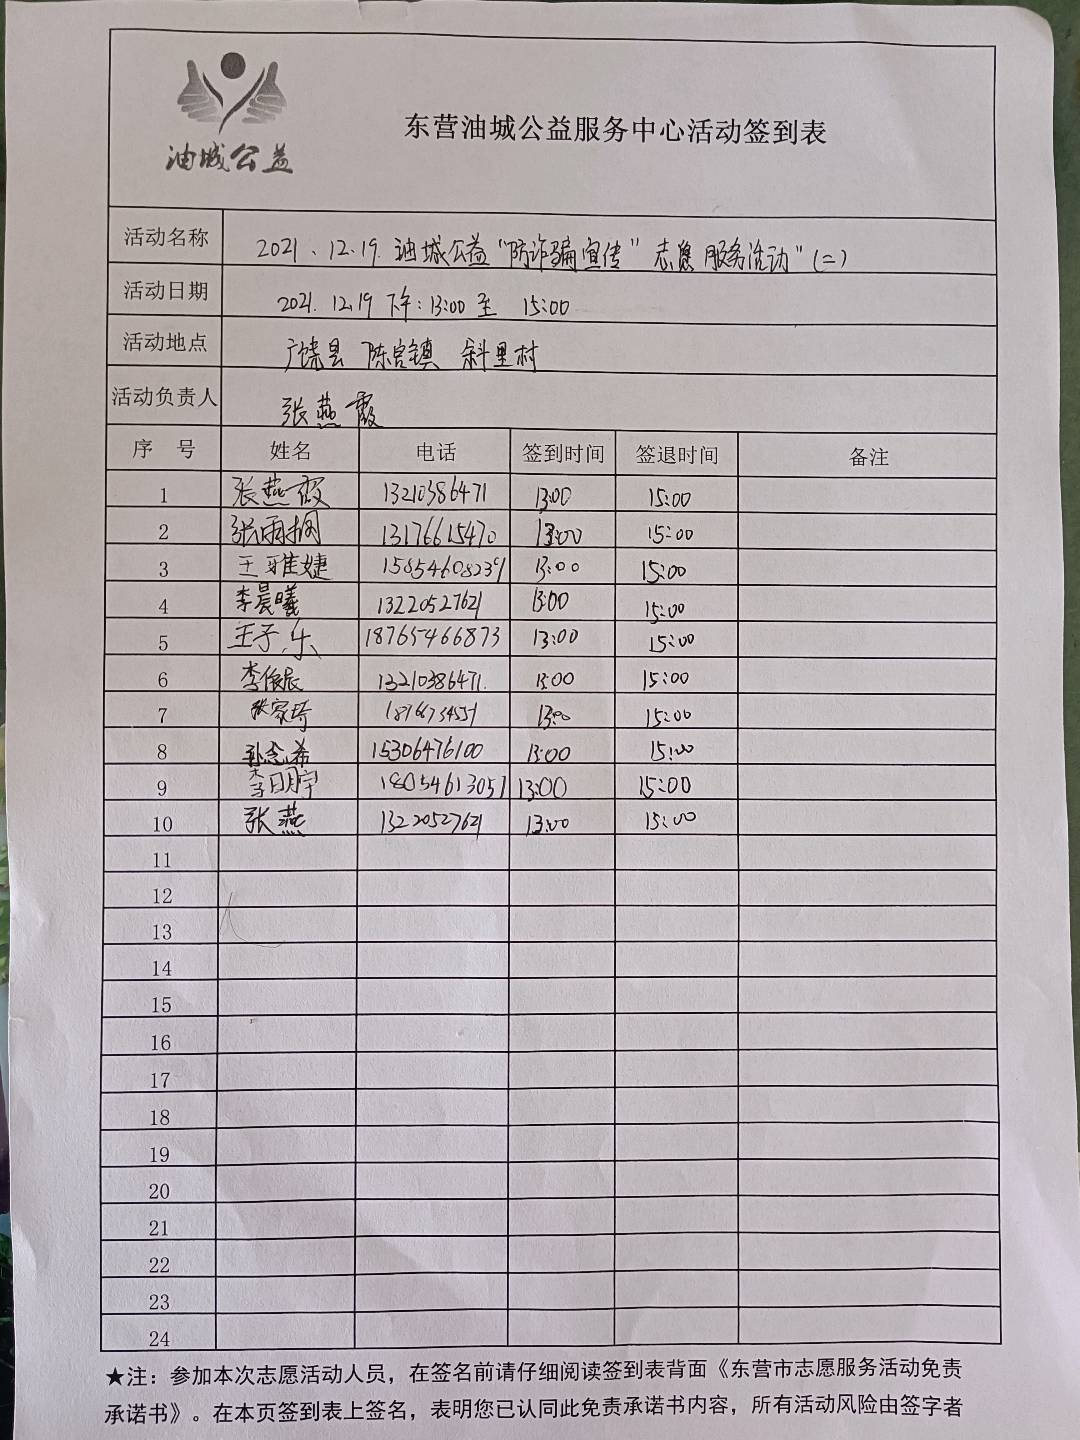 油城公益
东营油城公益服务中心活动签到表
活动名称 2021、12.19.油城公益“防诈骗宣传”志愿服务活动”(二)
活动日期 2021.12.19 下午:13:00 至 15:00
活动地点 广饶县 陈官镇 斜里村
活动负责人 张燕霞
序 号 姓名 电话 签到时间 签退时间 备注
1 张燕霞 13210386471 13:00 15:00
2 张雨桐 13176615470 13:00 15:00
3 王雅婕 15854608239 13:00 15:00
4 李晨曦 13220527621 13:00 15:00
5 王子乐 18765466873 13:00 15:00
6 李依辰 13210386471. 13:00 15:00
7 张家琦 13:00 15:00
8 孙念希 15306476100 13:00 15:00
9 李明宇 18054613051 13:00 15:00
10 张燕 13220527621 13:00 15:00
11
12
13
14
15
16
17
18
19
20
21
22
23
24
★注：参加本次志愿活动人员，在签名前请仔细阅读签到表背面《东营市志愿服务活动免责
承诺书》。在本页签到表上签名，表明您已认同此免责承诺书内容，所有活动风险由签字者